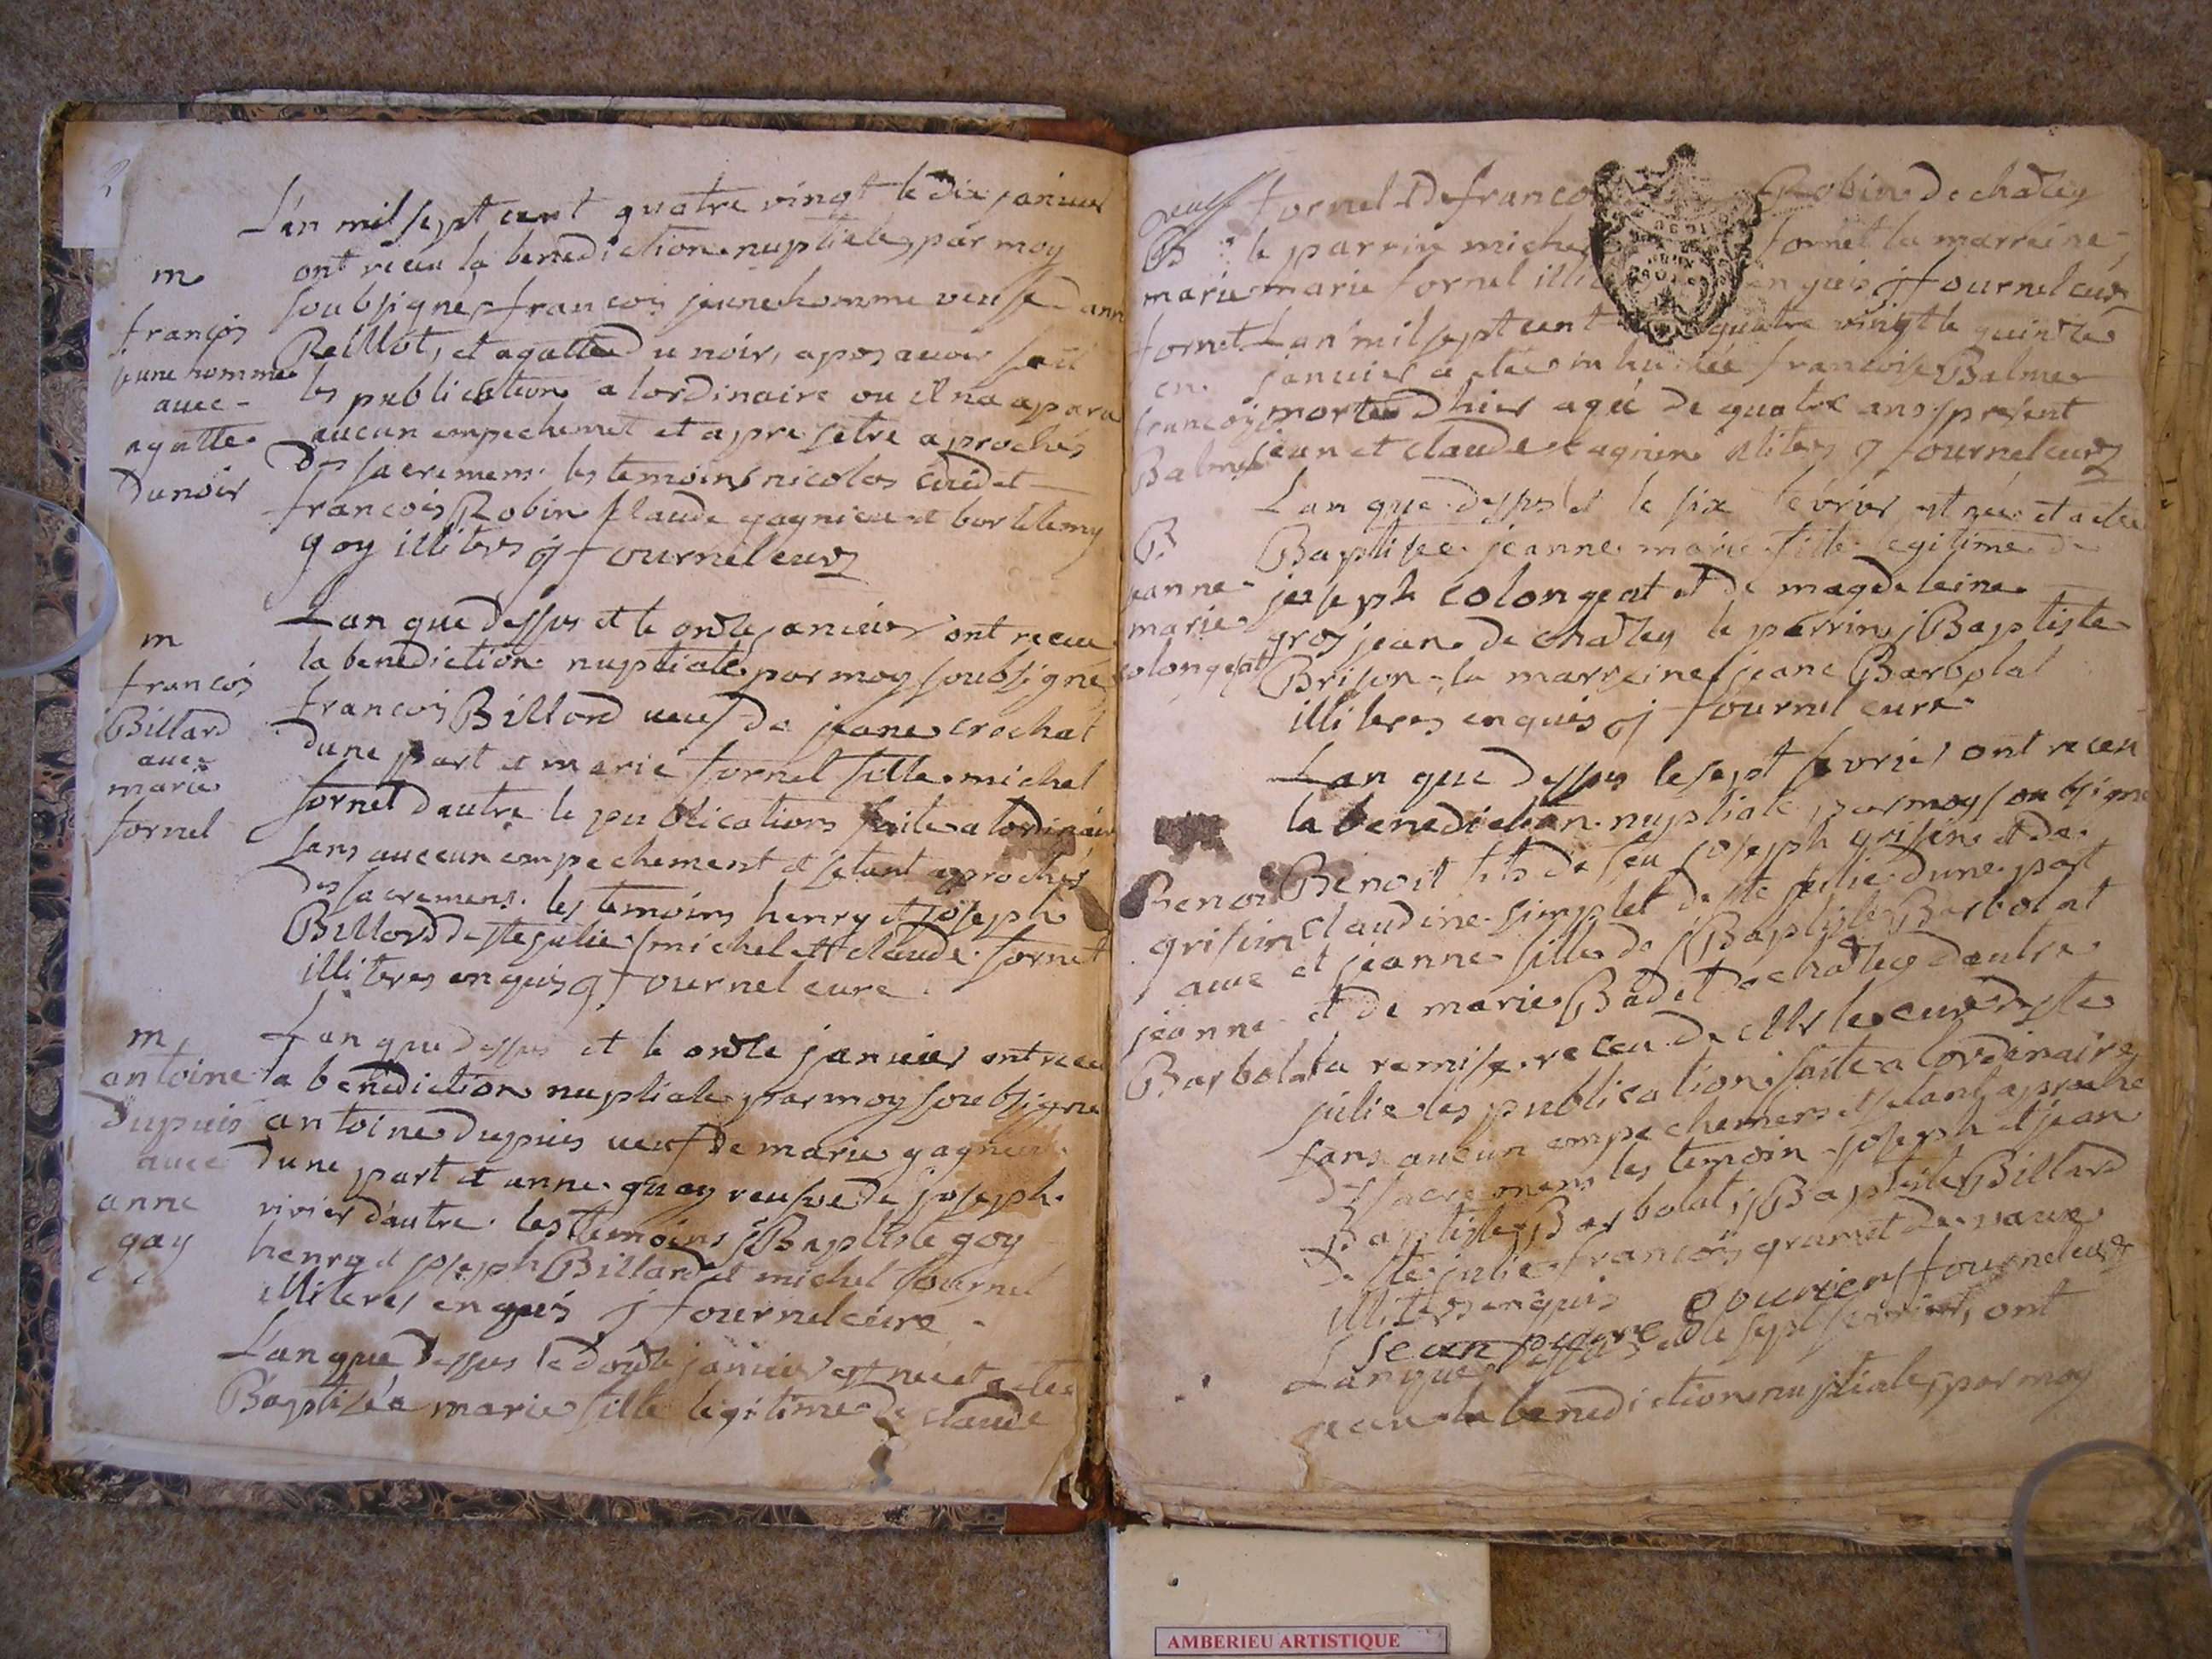 L'an mil sept cent quatre vingt le dix janvier
ont receu la benediction nuptiale par moy
soubsigné francois jeunehomme veuf d'ann
Reillot, et agatte dunoir, apres avoir fait
les publications a lordinaire ou il na aparu
aucun empechemet et apre setre aproches
des sacremens les temoins nicolas cudet
francois Robin claude gagnieu et bartelemy
goy illiteres j fournel curé
m
francois
jeune homme
avec
agatte
dunoir
Lan que dessus et le onze janvier ont receu
la benediction nuptiale par moy soubsigne
francois Billard veuf de jeane crochat
dune part et marie fornel fille michel
fornel dautre le publications faite a lordinaire
sans auccun empechement et setant aprochés
des sacremens. les temoins henry et joseph
Billard de ste julie michel et claude fornet
illiteres enquis j fournel cure
m
francois
Billard
avec
marie
fornel
Lan que dessus et le onze janvier ont receu
la benediction nuptiale par moy soubsigne
antoine dupuis veuf de marie gagnieu
dune part et anne guay veufve de joseph
vivier dautre. les temoins j Baptiste goy
henry et joseph Billard et michel fournel
illiteres enquis j fournel cure
m
antoine
dupuis
avec
anne
gay
Lan que dessus le douze janvier est née et a ete
Baptisée marie fille legitime de claude
neuf
fornel et de franco Robin de chazey
le parrin michel fornet la marreine
marie fornel illi enquis j fournel curé
B
marie
fornet
Lan mil sept cent quatre vingt le quinze
janvier a etee inhumée francoise Balme
morte dhier ageé de quatre ans present
jean et claude cagnin illiteres j fournel curé
en
francoise
Balme
Lan que dessus et le six fevrier est née et a ete
Baptisee jeanne marie fille legitime de
joseph colongeat et de magdeleine
grosjean de chazey le parrin j Baptiste
Brison la marreine jeane Barbolat
illiteres enquis j fournel cure
B
jeanne
marie
colongeat
Lan que dessus le sept fevrier ont receu
la benediction nuptiale par moy soubsigne
Benoit fils de feu joseph grisin et de
claudine simplet de ste julie dune part
et jeanne fille de j Baptiste Barbolat
et de marie Badet de chazey dautre
la remise receu de Mr le curé de ste
julie les publications faite a lordinaire
sans aucun empechemens et setant aproche
des sacremens les temoin joseph et jean
Baptiste Barbolat, j Baptiste Billard
de ste julie francois gramet de vaux
illiteres enquis
Benoi
grisin
avec
jeanne
Barbolat
jean pierre fournel curé
Lan que dessus et le sept fevrier, ont
receu la benediction nuptiale par moy
AMBERIEU ARTISTIQUE